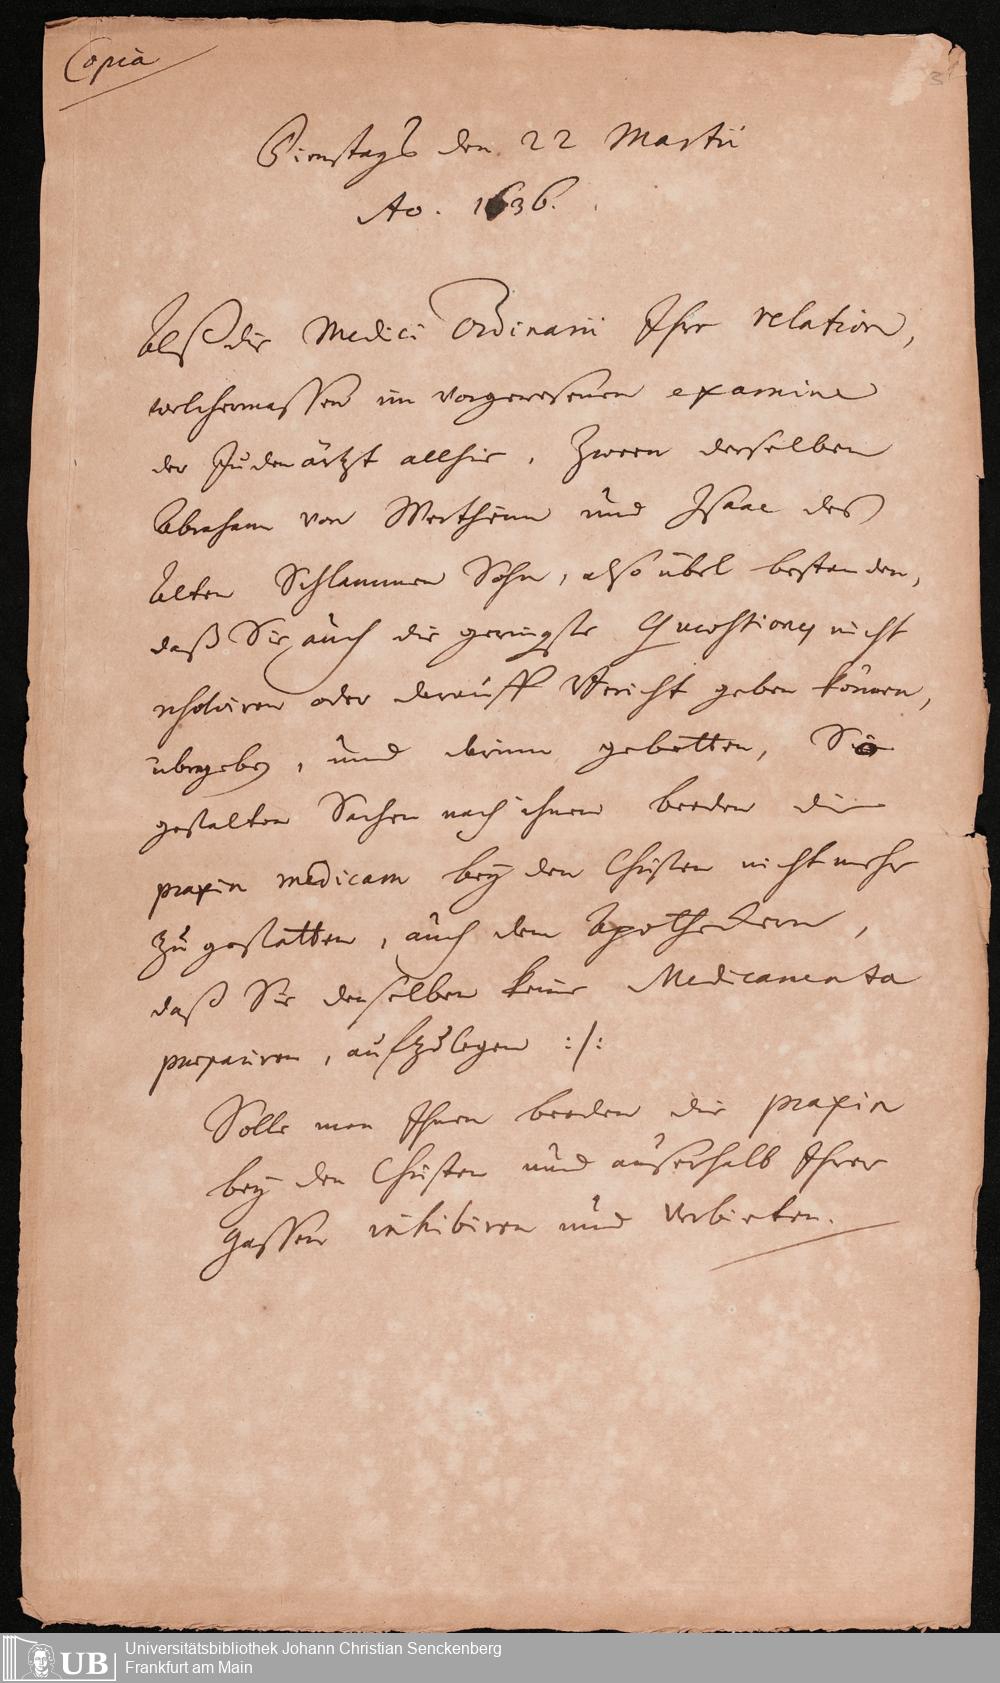 Copia
3
Dienstags den 22 Martii
Ao. 1636.
Alß die Medici Ordinarii Ihre relation,
welchermassen im vorgewesenen examine
der Judenärtzt allhie, Zween derselben
Abraham von Wertheim und Isaac des
Alten Schlammen Sohn, also übel bestanden,
daß Sie auch die geringste Quaestiones nicht
resolviren oder darauff Bericht geben können,
übergeben, und darinn gebetten, So
gestalten Sachen nach ihnen beeden die
praxin medicam bey den Christen nicht mehr
zu gestatten, auch den Apotheckern,
daß Sie denselben keine Medicamenta
praepariren, aufzulegen :/:
Solle man Ihnen beeden die praxin
bey den Christen und außerhalb Ihrer
Gassen inhibiren und verbieten.
UB
Universitätsbibliothek Johann Christian Senckenberg
Frankfurt am Main